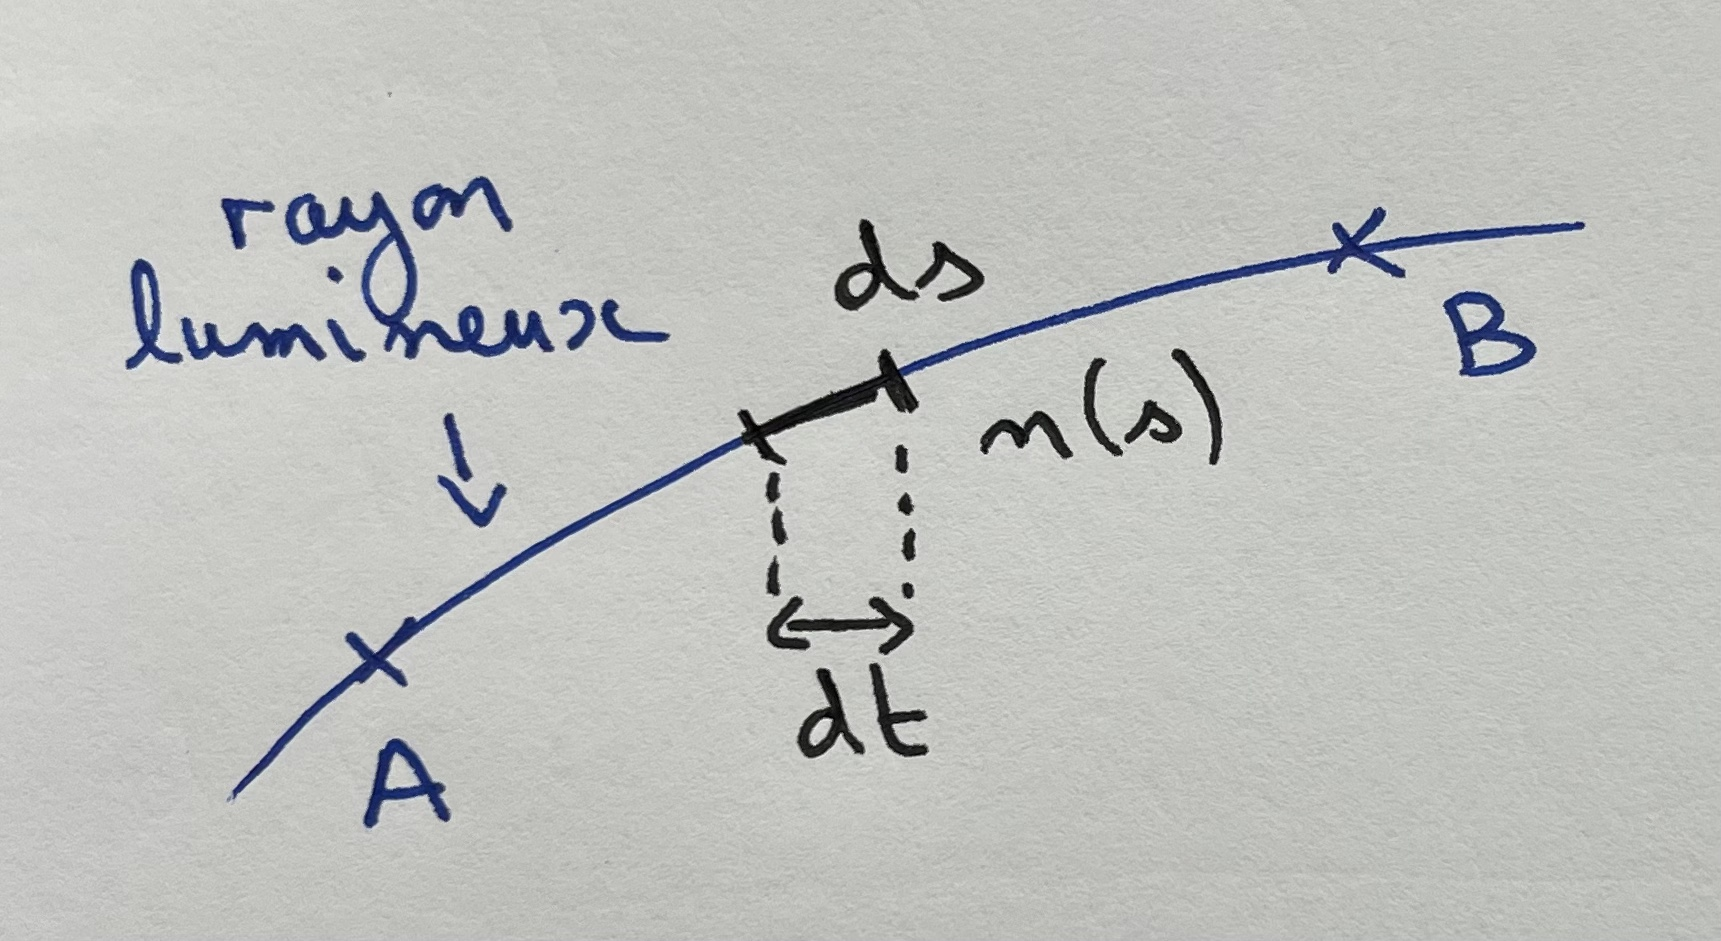 rayon
lumineux
ds
B
n(s)
dt
A